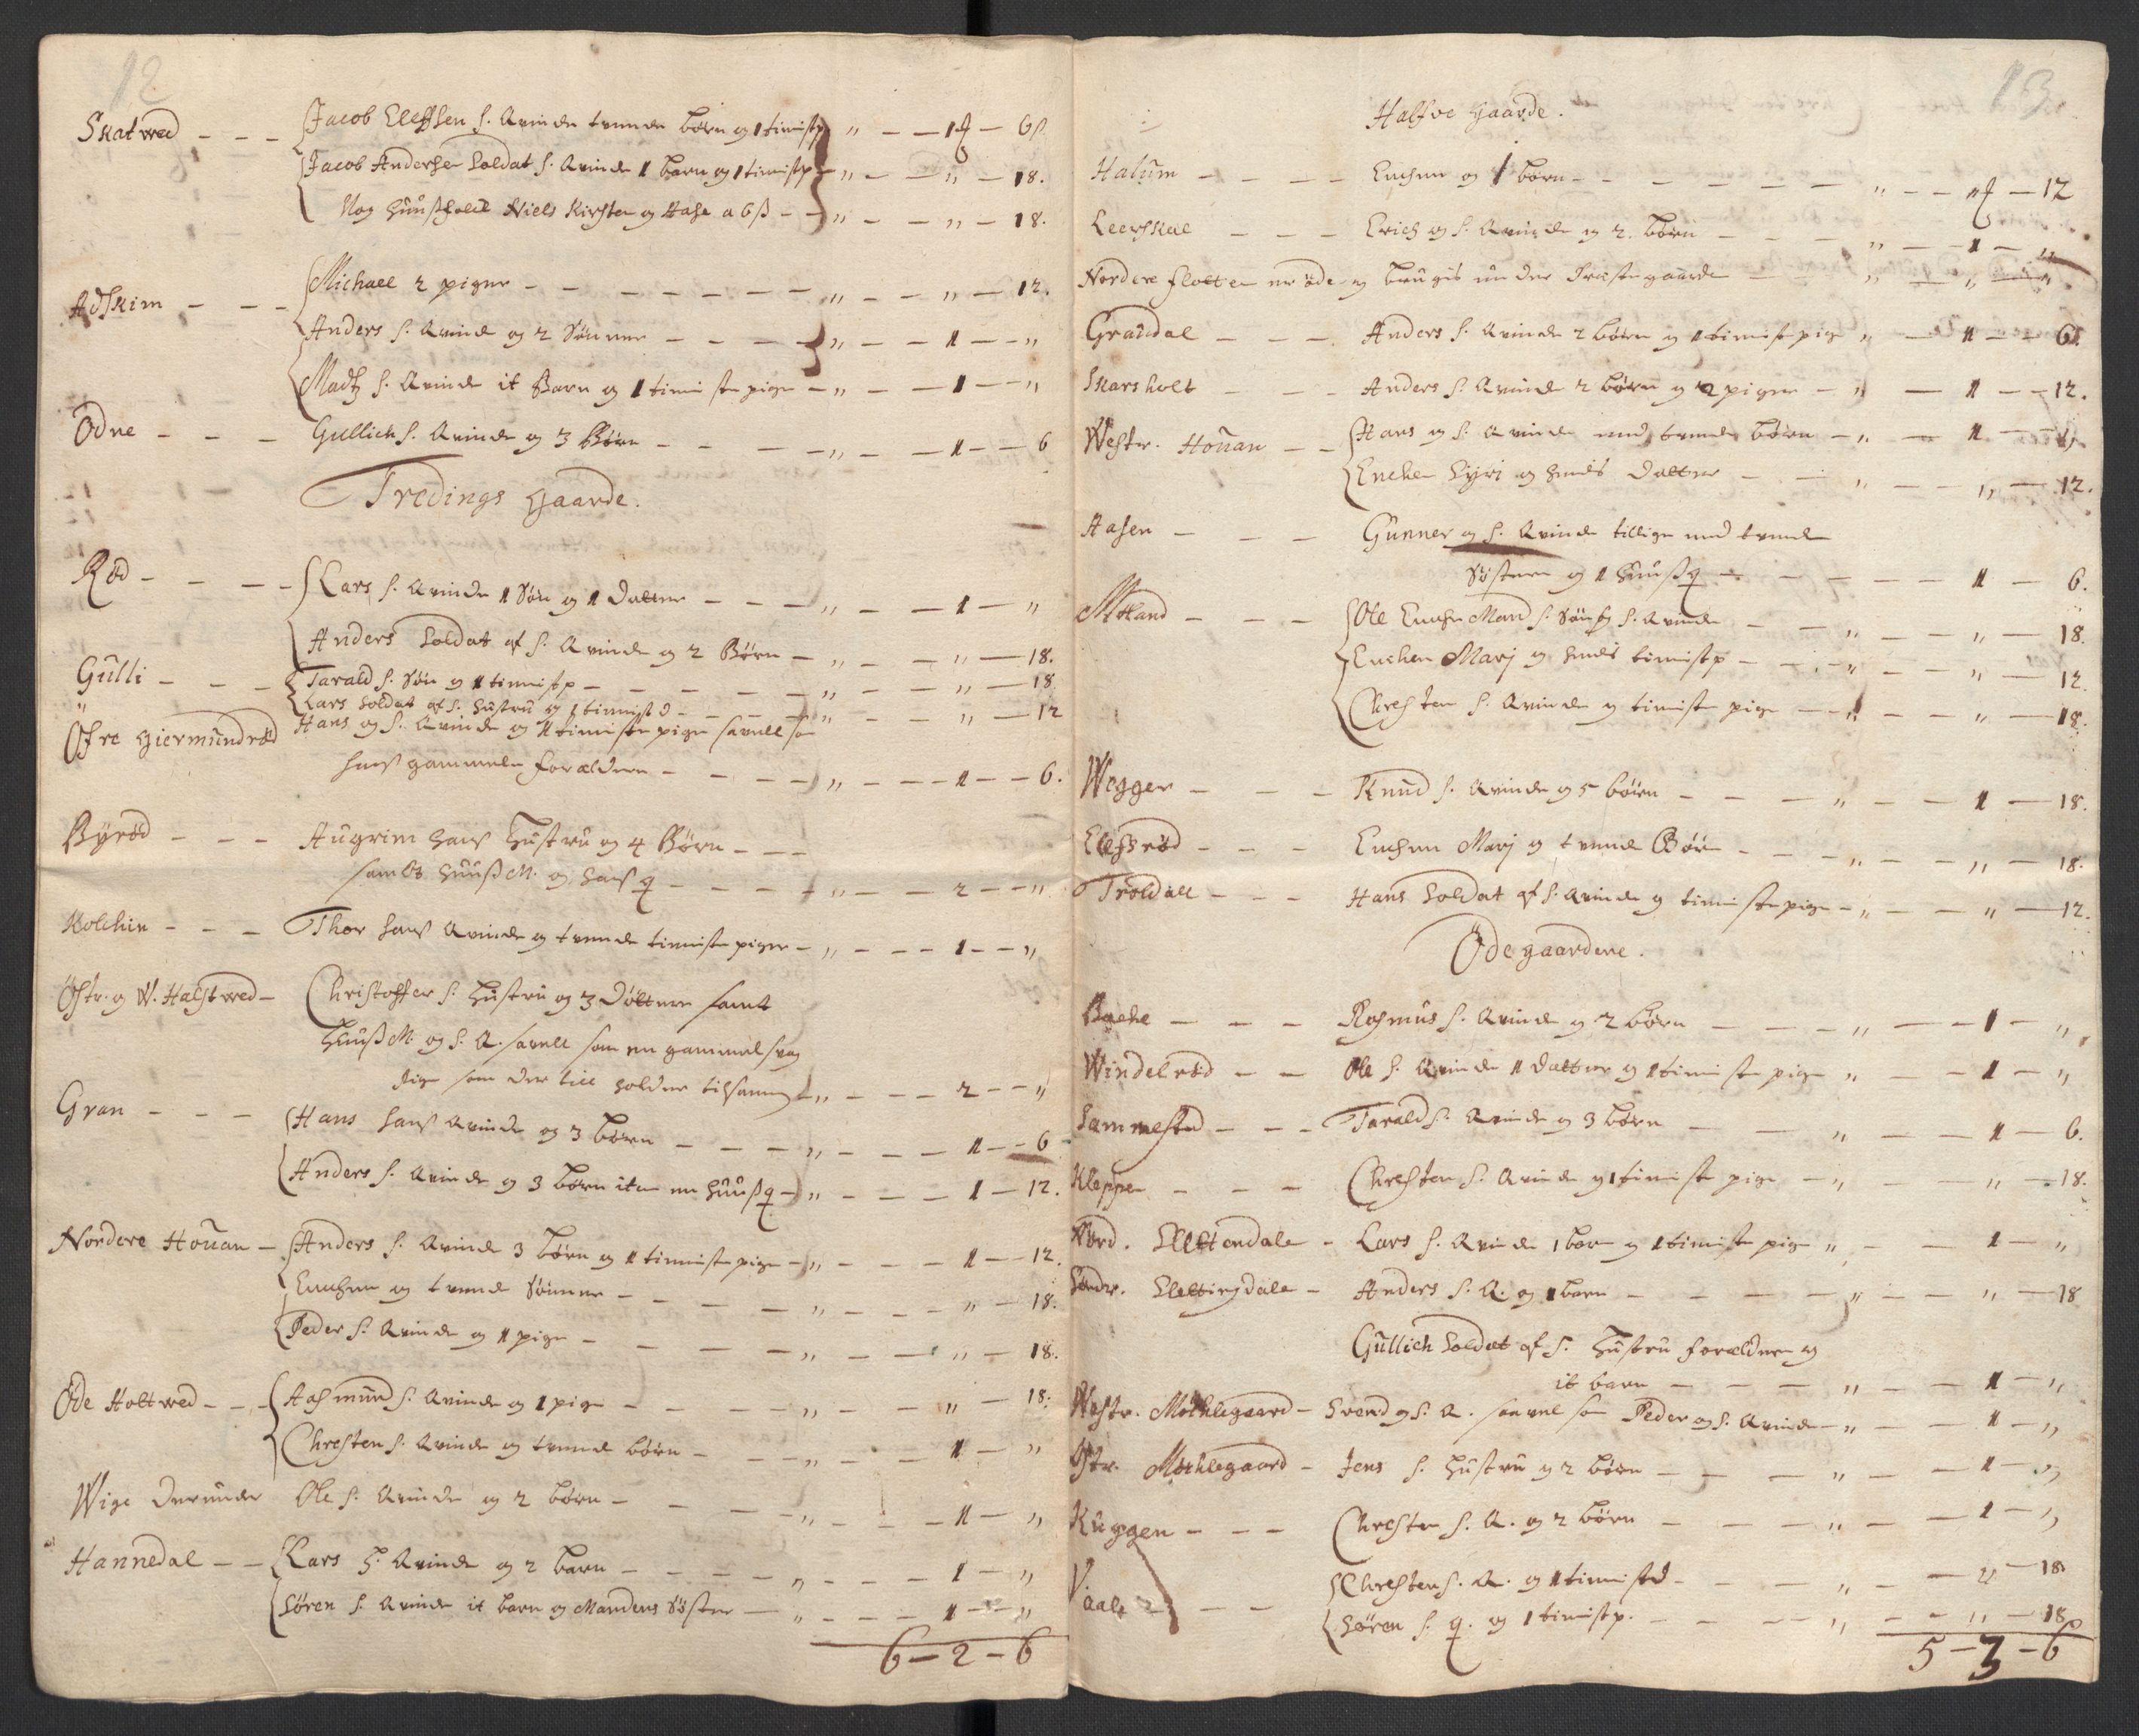 12
Skatwed - - - Jacob Eleffsen s. Qvinde tvende børn og 1 tienistp „ - - 1 - 6 s.
Jacob Andersen Soldat s. Qvinde 1 barn og 1 tienistp - „ - - „ - 18.
Nog huusfolck Niels Kirsten og Aase a 6 s - - „ - - „ - 18.
Adskim - - - Michael 2 piger - - - - - - - „ - - „ - 12.
Anders s. Qvinde og 2 Sønner - - - - „ - - 1 - - „
Madtz s. Qvinde it Barn og 1 tienistepige - „ - - 1 - - „
Odne - - - Gullich s. Qvinde og 3 Børn - - - - „ - - 1 - - 6
Tredings Gaarde.
Rød - - - - Lars s. Qvinde 1 Søn og 1 datter - - - „ - - 1 - „
Anders Soldat af s. Qvinde og 2 Børn - „ - - „ - 18.
Gulli - - - Tarald s. Søn og 1 tienistp - - - - - - „ - - „ - 18
Lars Soldat af s. hustru og 1 tienist d - - - - „ - - „ - 12
Øfre Giermundrød Hans og s. Qvinde og 1 tienistepige savell som
hans gammele forældere - - - - - „ - - - 1 - - 6.
Byrød - - - Augrim hans Hustru og 4 Børn - - -
samt huuss M. og hans q - - - - „ - - 2 - - „
Kolchin - - - Thor hans Qvinde og tvende tieniste piger - „ - - - 1 - - „
Østr. og W. Halstwed - Christoffer s. Hustru og 3 døttre samt
Huuss M. og s. Q. savell som en gammel svag
Pige som der till holder tilsammen „ - - - 2 - - „
Gran - - - Hans hans Qvinde og 3 børn - - - - „ - - - 1 - - 6
Anders s. Qvinde og 3 børn item en huuss q - „ - - - 1 - 12.
Nordere Houan - Anders s. Qvinde 3 børn og 1 tienistepige - „ - - - 1 - - 12.
Enchen og tvende Sønner - - - - - „ - - - „ - 18.
Peder s. Qvinde og 1 pige - - - - - „ - - - „ - 18.
Øde Holtwed - - - Aasmund s. Qvinde og 1 pige - - - - „ - - „ - 18.
Christen s. Qvinde og tvende børn - - - „ - - 1 - „
Wige derunder Ole s. Qvinde og 2 børn - - - - „ - - - 1 - „
Hannedal - - Lars H. Qvinde og 2 barn - - - - „ - - - 1 - „
Søren s. Qvinde it barn og Mandens Søster - „ - - - 1 - - „
6 - 2 - 6
13
Halfve Gaarde.
Halum - - - - Enchen og 1 børn - - - - - - - „ - - „ - 12
Leerskal - - - Erich og s. Qvinde og 2. børn - - - „ - - 1 - „
Nordere flotten er øde og brugis under Præstegaarden - „ - „ - „
Graudal - - - Anders s. Qvinde 2 børn og 1 tienistepige „ - 1 - - 6 s.
Skarsholt - - - Anders s. Qvinde 2 børn og 2 piger - „ - 1 - - 12.
Westr. Houan - - Hans og s. Qvinde med tvende børn - „ - 1 - - „
Enchen Syri og hendes datter - - „ - - „ - 12.
Aasen - - - Gunner og s. Qvinde tillige med tvende
Søstere og 1 huuss q - - - - - - 1 - 6.
Mokand - - - Ole Enche Mand s. Søn og s. Qvinde - - „ - - „ - 18.
Enchen Marj og hendes tienistp - - - „ - - „ - 12.
Christen s. Qvinde og tieniste pige - - „ - - „ - 18.
Wegger - - - Knud s. Qvinde og 5 børn - - - - „ - - 1 - 18.
Eleffsrød - - - Enchen Marj og tvende Børn - - - „ - - „ - 18.
Troldall - - - Hans Soldat af s. Qvinde og tienistepige - „ - - „ - 12.
Ødegaardene.
Backe - - - Rasmus s. Qvinde og 2 børn - - - „ - - 1 - „
Windelrød - - Ole s. Qvinde 1 datter og 1 tienistepige „ - - 1 - „
Sammestad - - - Tarald s. Qvinde og 3 børn - - „ - - 1 - 6.
Kleppen - - - Christen s. Qvinde og 1 tienistepige - „ - - „ - 18.
Nord. Slettendale - Lars s. Qvinde 1 barn og 1 tienistepige „ - - 1 - „
Søndr. Slettingdale - Anders s. Q. og 1 barn - - - - „ - - „ - 18
Gullich Soldat af s. Hustru forældere og
it barn - - - - „ - - 1 - „
Westr. Mochlegaard - Svend og s. Q. saavel som Peder og s. Qvinde - „ - 1 - „
Østr. Mochlegaard - Jens s. Hustru og 2 børn - - - „ - - 1 - „
Kuggen - - - Christen s. Q. og 2 børn - - - „ - - 1 - „
Vaale - - - Christen s. Q. og 1 tienistd - - - „ - - „ - 18
Søren s. q. og 1 tienistp. - - - - „ - - „ - 18
5 - 3 - 6